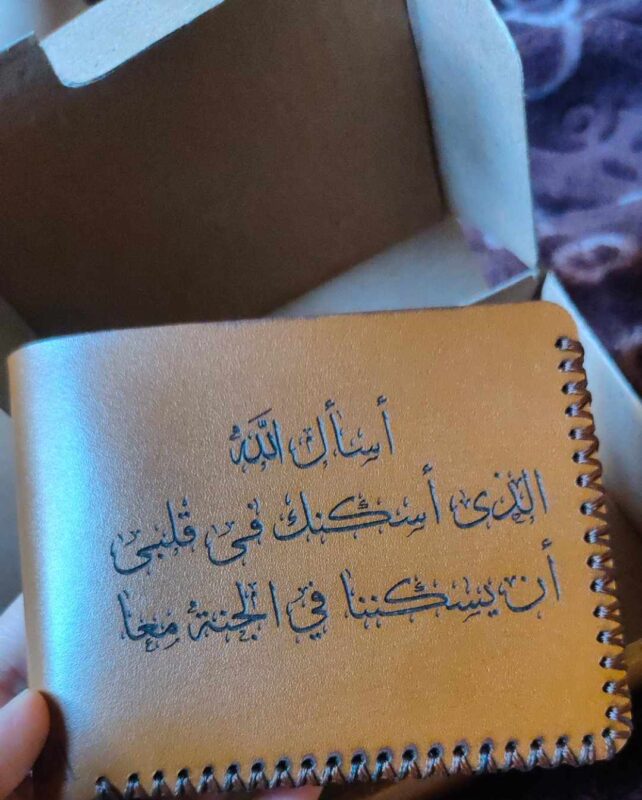 أسأل اللَّه
الذى أسكنك فى قلبى
أن يسكننا في الجنة معا